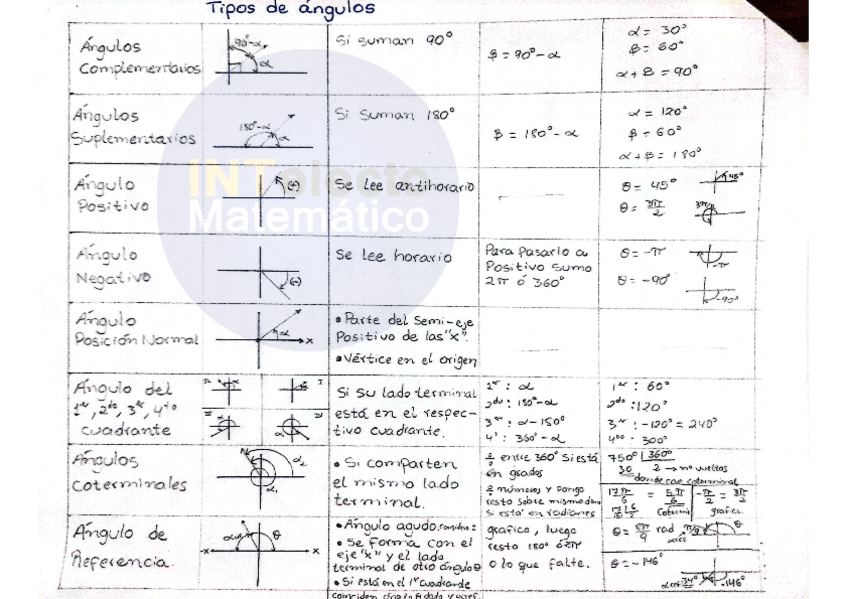 Tipos de ángulos
Ángulos
Complementarios
90°-α
α
Si suman 90°
β = 90° - α
α = 30°
β = 60°
α + β = 90°
Ángulos
Suplementarios
180°-α
α
Si suman 180°
β = 180° - α
α = 120°
β = 60°
α + β = 180°
INTelecto
Matemático
Ángulo
Positivo
(+)
Se lee antihorario
θ = 45°
45°
θ = 3π/2
Ángulo
Negativo
(-)
Se lee horario
Para pasarlo a
Positivo sumo
2π ó 360°
θ = -π
-π
θ = -90°
-90°
Ángulo
Posición Normal
α
x
• Parte del Semi-eje
Positivo de las "x".
• Vértice en el origen
Ángulo del
1er, 2do, 3er, 4to
cuadrante
Si su lado terminal
está en el respec-
tivo cuadrante.
1er : α
2do : 180-α
3er : α-180°
4° : 360°-α
1er : 60°
2do : 120°
3er : -120° = 240°
4to : 300°
Ángulos
Coterminales
α2
α1
• Si comparten
el mismo lado
terminal.
entre 360° si está
en grados
números y pongo
resto sobre mismo
si está en radianes
750° 360°
30 2 → nº vueltas
donde cae coterminal
17π/6 = 5π/6
-π/2 = 3π/2
17 6
Ángulo de
Referencia.
-x
θ
x
• Ángulo agudo.
• Se forma con el
eje "x" y el lado
terminal de otro ángulo θ
• Si está en el 1er cuadrante
grafico, luego
resto 180° ó 2π
o lo que falte.
θ = 5π/9 rad
θ
θ = -146°
34°
-146°